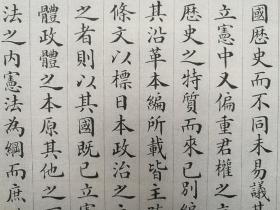 國歷史而不同未易議其
立憲中又偏重君權之立
歷史之特質而來已別編
其沿革本編所載皆主
條文以標日本政治之
之者則以其國既已立憲
體政體之本原其他之
法之內憲法為綱而庶